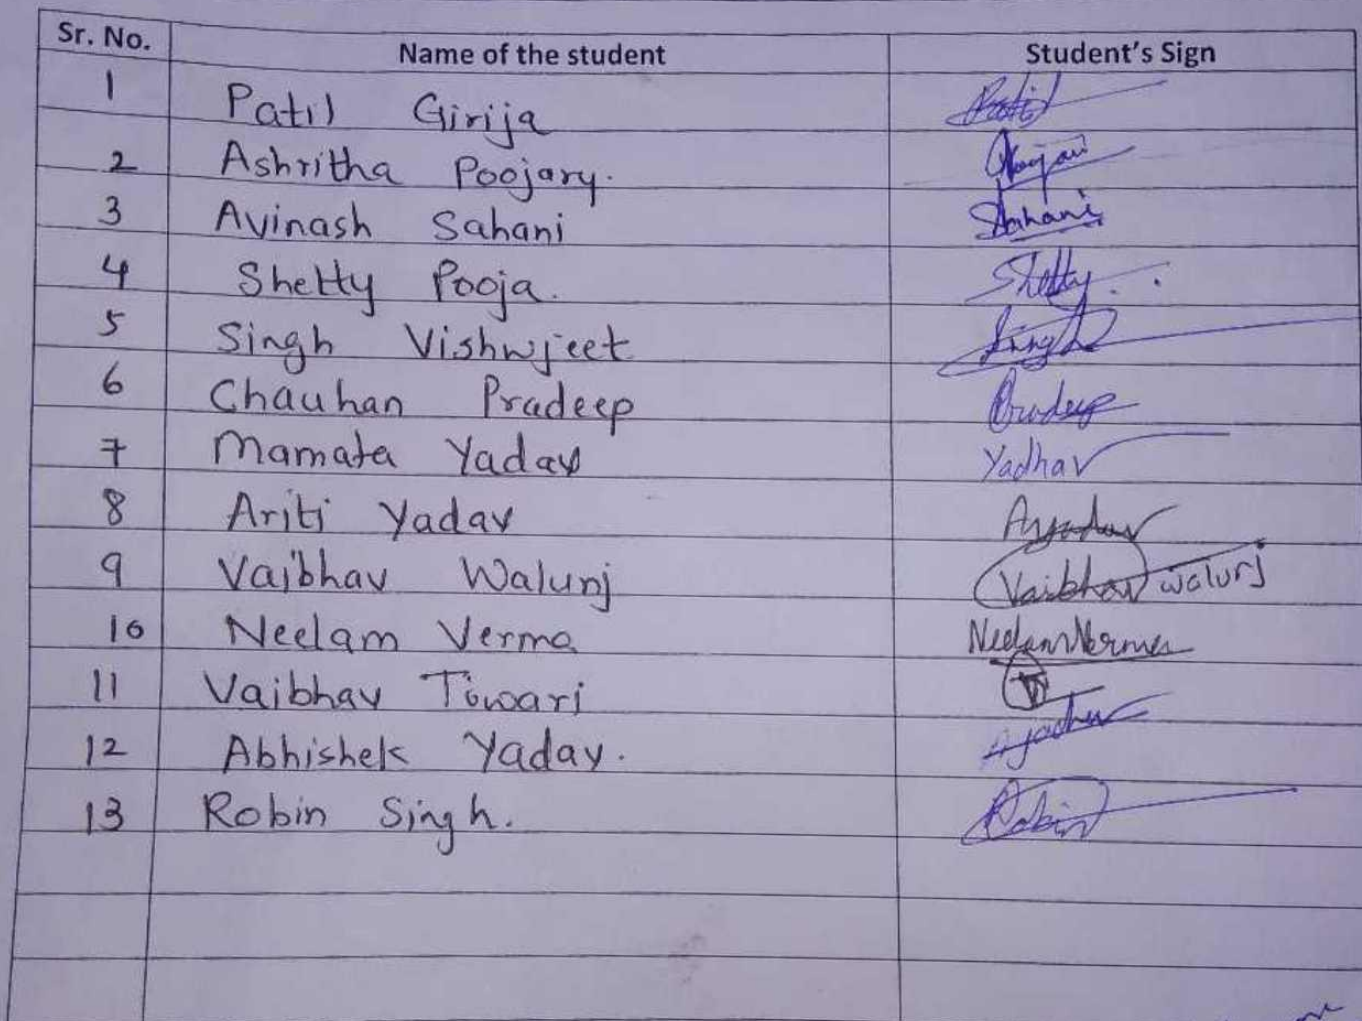 Sr. No. Name of the student Student's Sign
1 Patil Girija Patil
2 Ashritha Poojary.
3 Avinash Sahani Sahani
4 Shetty Pooja. Shetty.
5 Singh Vishwjeet Singh
6 Chauhan Pradeep Pradeep
7 Mamata Yadav Yadhav
8 Ariti Yadav Ayadav
9 Vaibhav Walunj Vaibhav walunj
10 Neelam Verma Neelam Verma
11 Vaibhav Tiwari
12 Abhishek Yadav. Ayadav
13 Robin Singh. Robin